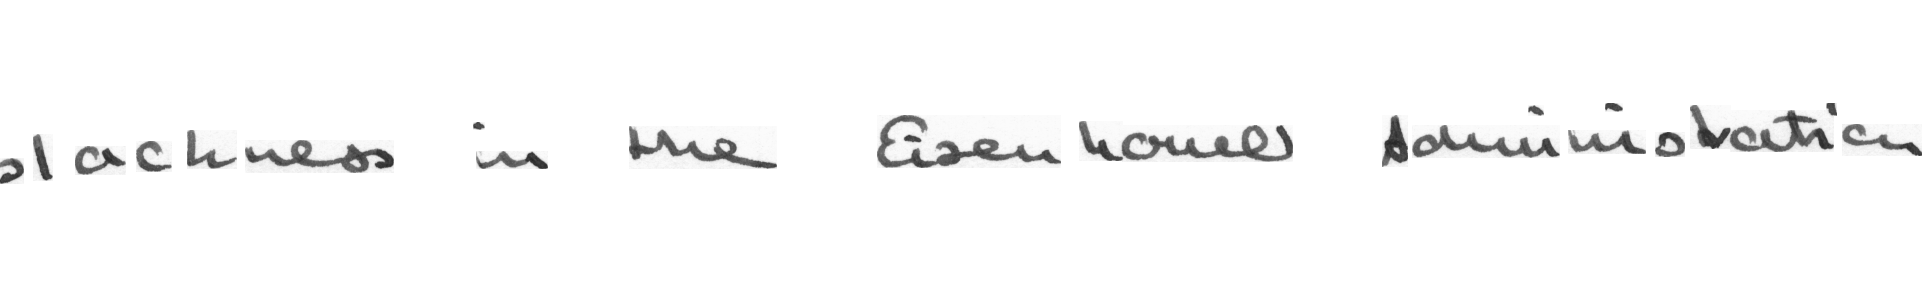 slackness in the Eisenhower Administration